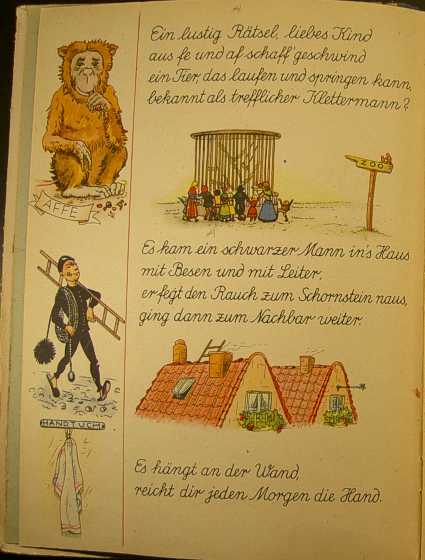 Ein lustig Rätsel, liebes Kind
aus fe und af schaff' geschwind
ein Tier, das laufen und springen kann,
bekannt als trefflicher Klettermann?
AFFE
ZOO
Es kam ein schwarzer Mann in's Haus
mit Besen und mit Leiter,
er fegt den Rauch zum Schornstein naus,
ging dann zum Nachbar weiter.
HANDTUCH
Es hängt an der Wand,
reicht dir jeden Morgen die Hand.